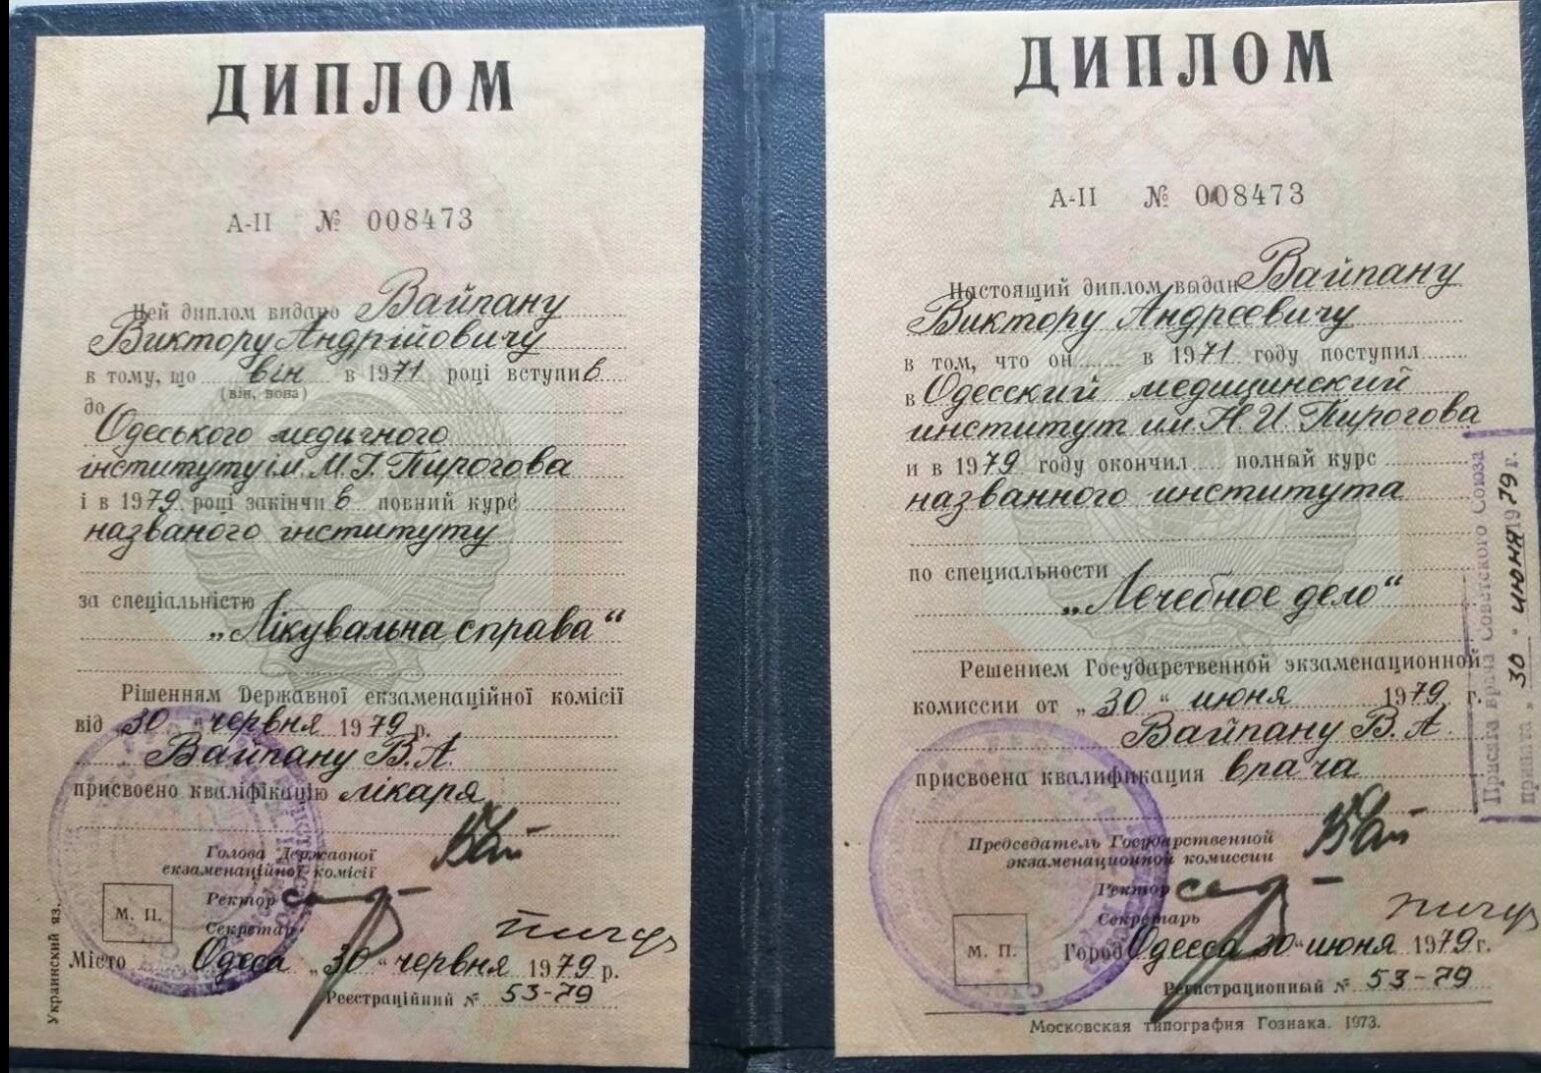 ДИПЛОМ
А-II № 008473
Цей диплом видано Вайпану
Виктору Андрійовичу
в тому, що він в 1971 році вступив
(він, вона)
до
Одеського медичного
інституту ім. М.І. Пирогова
і в 1979 році закінчив повний курс
названого інституту
за спеціальністю
„Лікувальна справа“
Рішенням Державної екзаменаційної комісії
від „30“ червня 1979 р.
Вайпану В.А.
присвоєно кваліфікацію лікаря
Голова Державної
екзаменаційної комісії
Ректор
Секретар
М. П.
Місто Одеса „30“ червня 1979 р.
Реєстраційний № 53-79
Украинский яз.
ДИПЛОМ
А-II № 008473
Настоящий диплом выдан Вайпану
Виктору Андреевичу
в том, что он в 1971 году поступил
в Одесский медицинский
институт им. Н.И. Пирогова
и в 1979 году окончил полный курс
названного института
по специальности
„Лечебное дело“
Решением Государственной экзаменационной
комиссии от „30“ июня 1979 г.
Вайпану В.А.
присвоена квалификация врача
Председатель Государственной
экзаменационной комиссии
Ректор
Секретарь
М. П.
Город Одесса 30 “ июня 1979 г.
Регистрационный № 53-79
Московская типография Гознака. 1973.
Присяга врача Советского Союза
принята „30“ июня 1979 г.